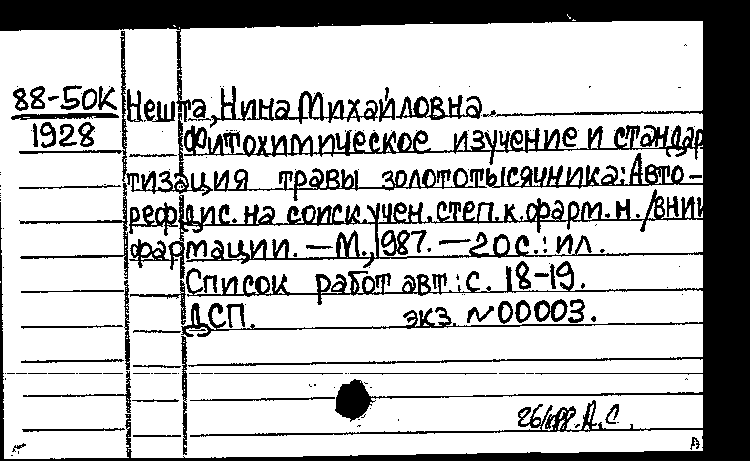 88-50К Нешта, Нина Михайловна.
1928 Фитохимическое изучение и стандар
тизация травы золототысячника: Авто-
реф дис. на соиск. учен. степ. к. фарм. н. /ВНИИ
фармации. — М., 1987. — 20 с. : ил.
Список работ авт.: с. 18-19.
ДСП. экз. №00003.
А.С.